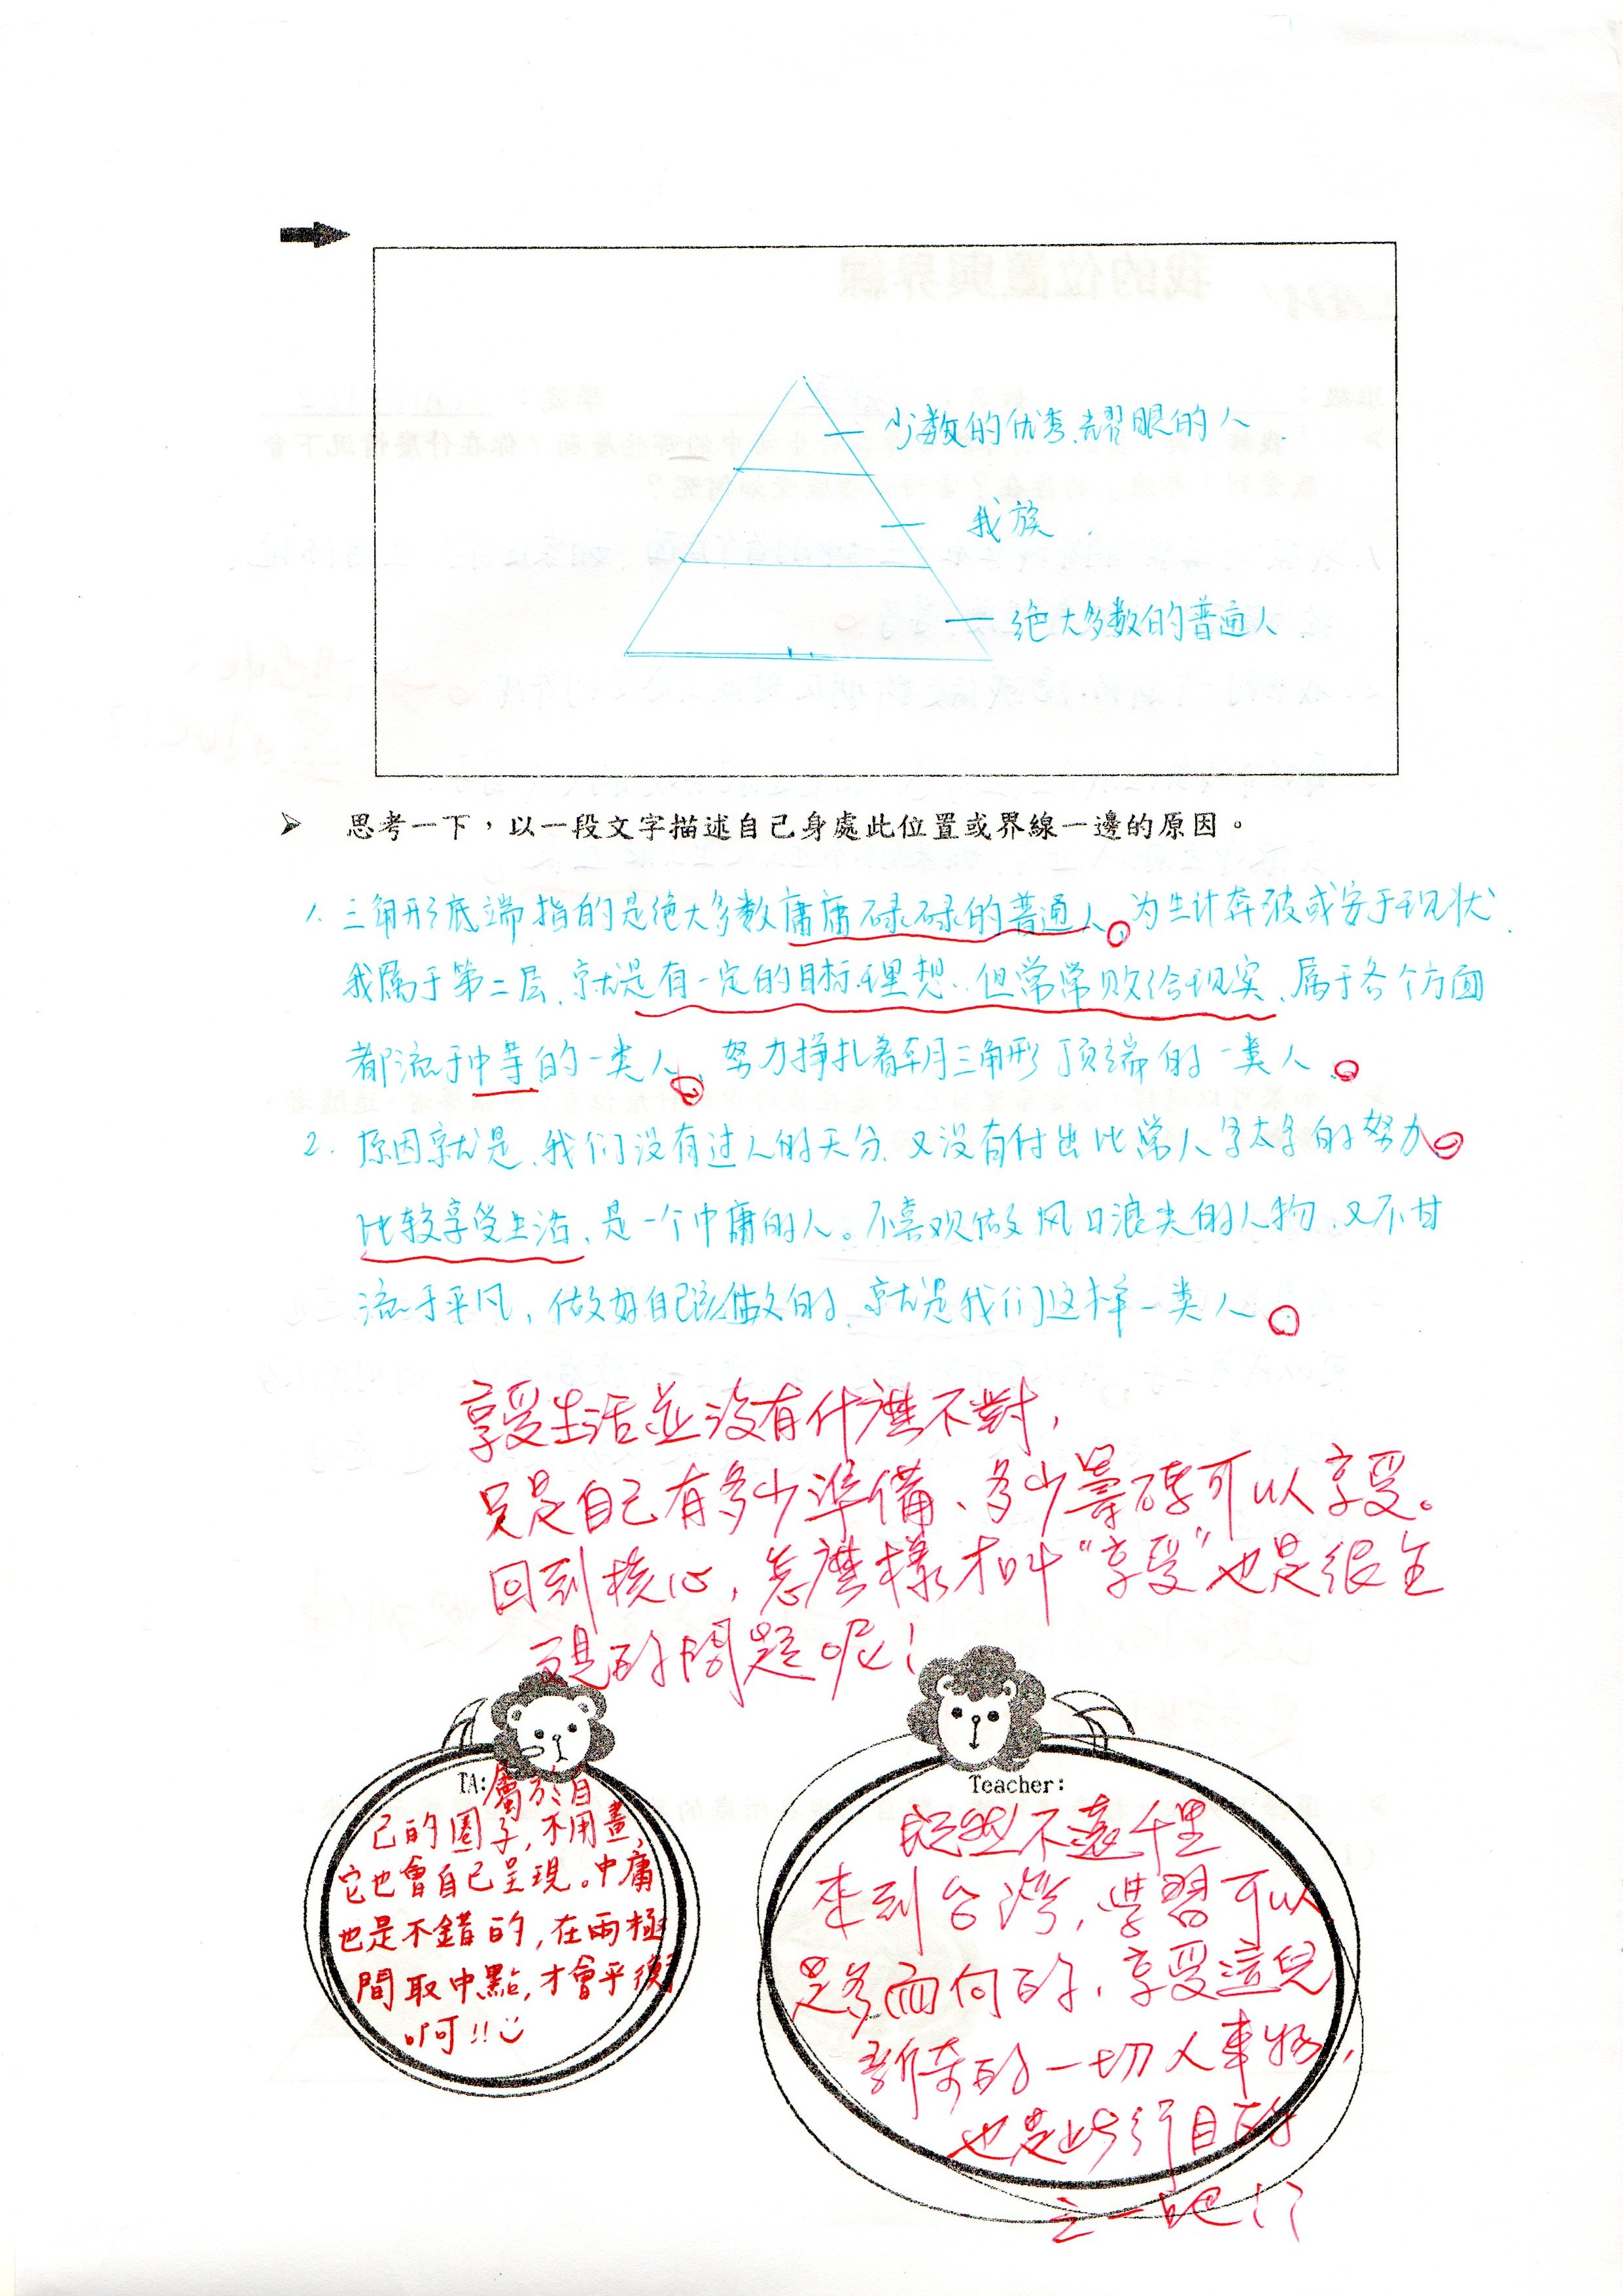 少数的优秀、耀眼的人.
我族.
绝大多数的普通人.
思考一下，以一段文字描述自己身處此位置或界線一邊的原因。
1. 三角形底端指的是绝大多数庸庸碌碌的普通人。为生计奔波或安于现状.
我属于第二层、就是有一定的目标、理想、但常常败给现实、属于各个方面
都流于中等的一类人。努力挣扎着朝三角形顶端的一类人。
2. 原因就是、我们没有过人的天分、又没有付出比常人多太多的努力。
比较享受生活、是一个中庸的人。不喜欢做风口浪尖的人物、又不甘
流于平凡，做好自己该做的、就是我们这样一类人。
享受生活並沒有什麼不對，
只是自己有多少準備、多少籌碼可以享受。
回到核心，怎麼樣才叫“享受”也是很主
觀的問題呢！
TA:屬於自
己的圈子,不用畫,
它也會自己呈現。中庸
也是不錯的,在兩極
間取中點,才會平衡
呵!!
Teacher:
既然不遠千里
來到台灣,學習可以
是多面向的,享受這兒
新奇的一切人事物,
也是此行目的
之一吧!?